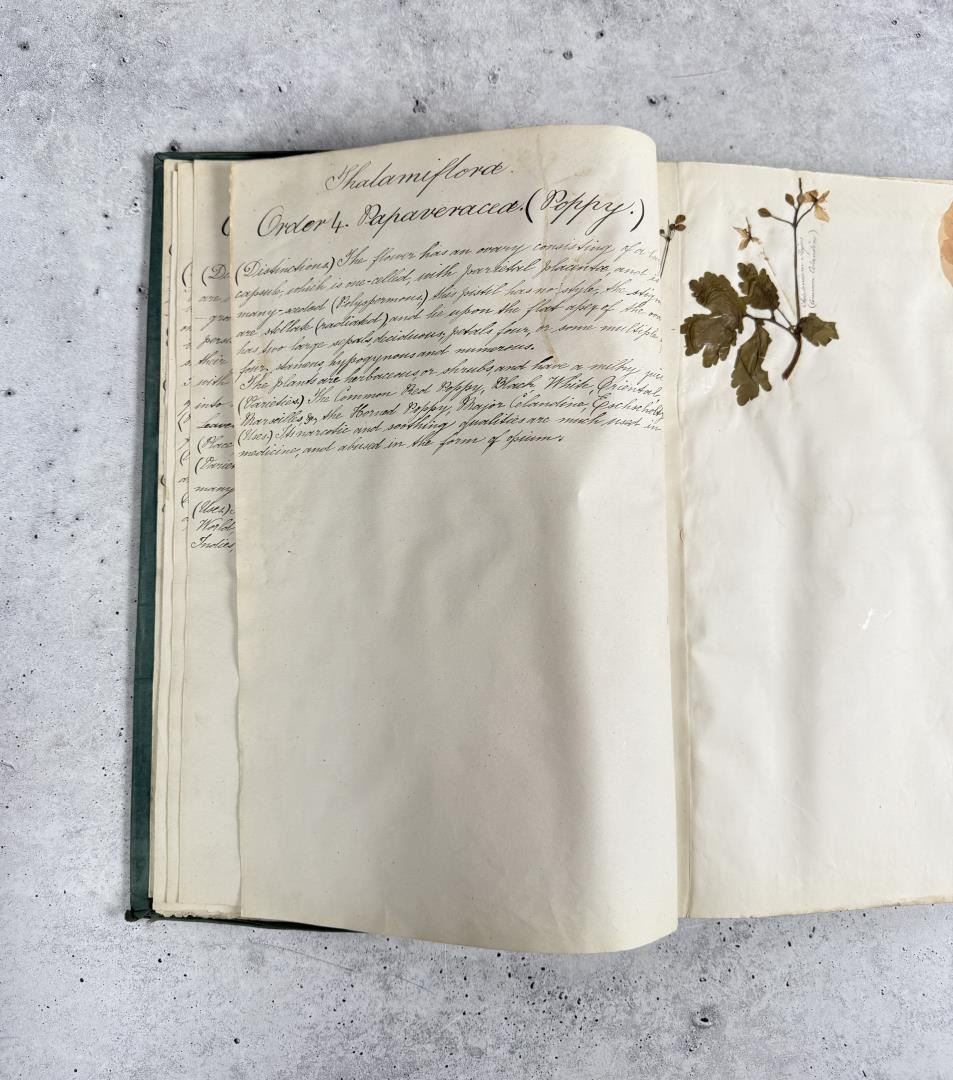 Thalamifloræ.
Order 4. Papaveraceæ. (Poppy.)
(Distinctions.) The flower has an ovary consisting of a
capsule, which is one-celled, with parietal placentæ, and is
many-seeded (Polyspermous) this pistil has no style, the
are stellate (radiated) and lie upon the flat apex of the
has two large sepals deciduous, petals four, or some multiple
four, stamens hypogynous and numerous.
The plants are herbaceous or shrubs, and have a milky
(Varieties) The Common Red Poppy, Black, White, Oriental,
Marseilles, &c, the Horned Poppy, Major Celandine,
(Uses) Its narcotic and soothing qualities are much used in
medicine, and abused in the form of opium.
are
with
into
(Place
many
(Uses)
World
Indies,